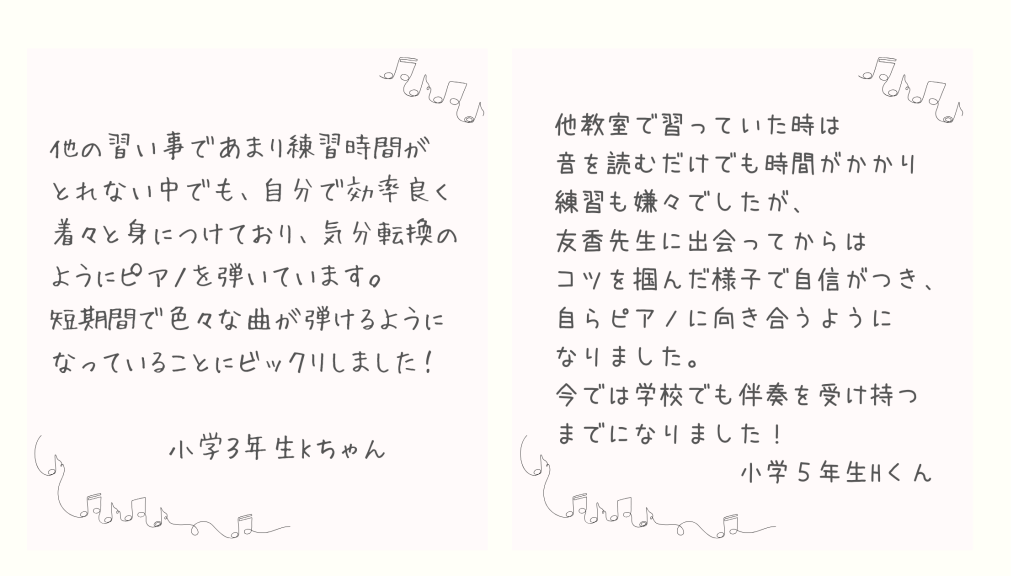 他の習い事であまり練習時間が
とれない中でも、自分で効率良く
着々と身につけており、気分転換の
ようにピアノを弾いています。
短期間で色々な曲が弾けるように
なっていることにビックリしました!
小学3年生Kちゃん
他教室で習っていた時は
音を読むだけでも時間がかかり
練習も嫌々でしたが、
友香先生に出会ってからは
コツを掴んだ様子で自信がつき、
自らピアノに向き合うように
なりました。
今では学校でも伴奏を受け持つ
までになりました!
小学5年生Hくん